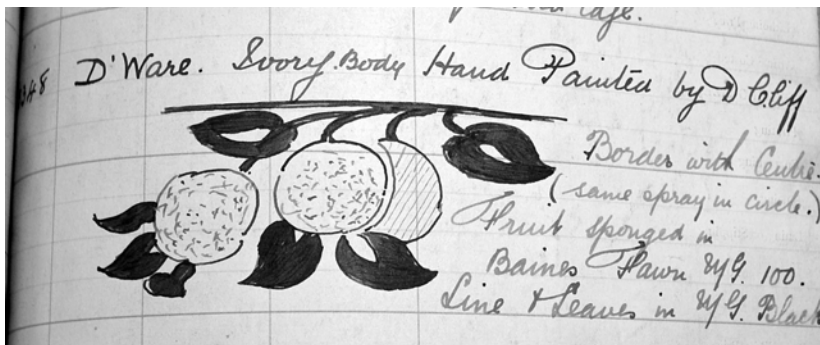 Cafe.
348 D'Ware. Ivory Body Hand Painted by D Cliff
Border with Centre.
(same spray in circle.)
Fruit sponged in
Baines Fawn U/G. 100.
Line & Leaves in U/G. Black